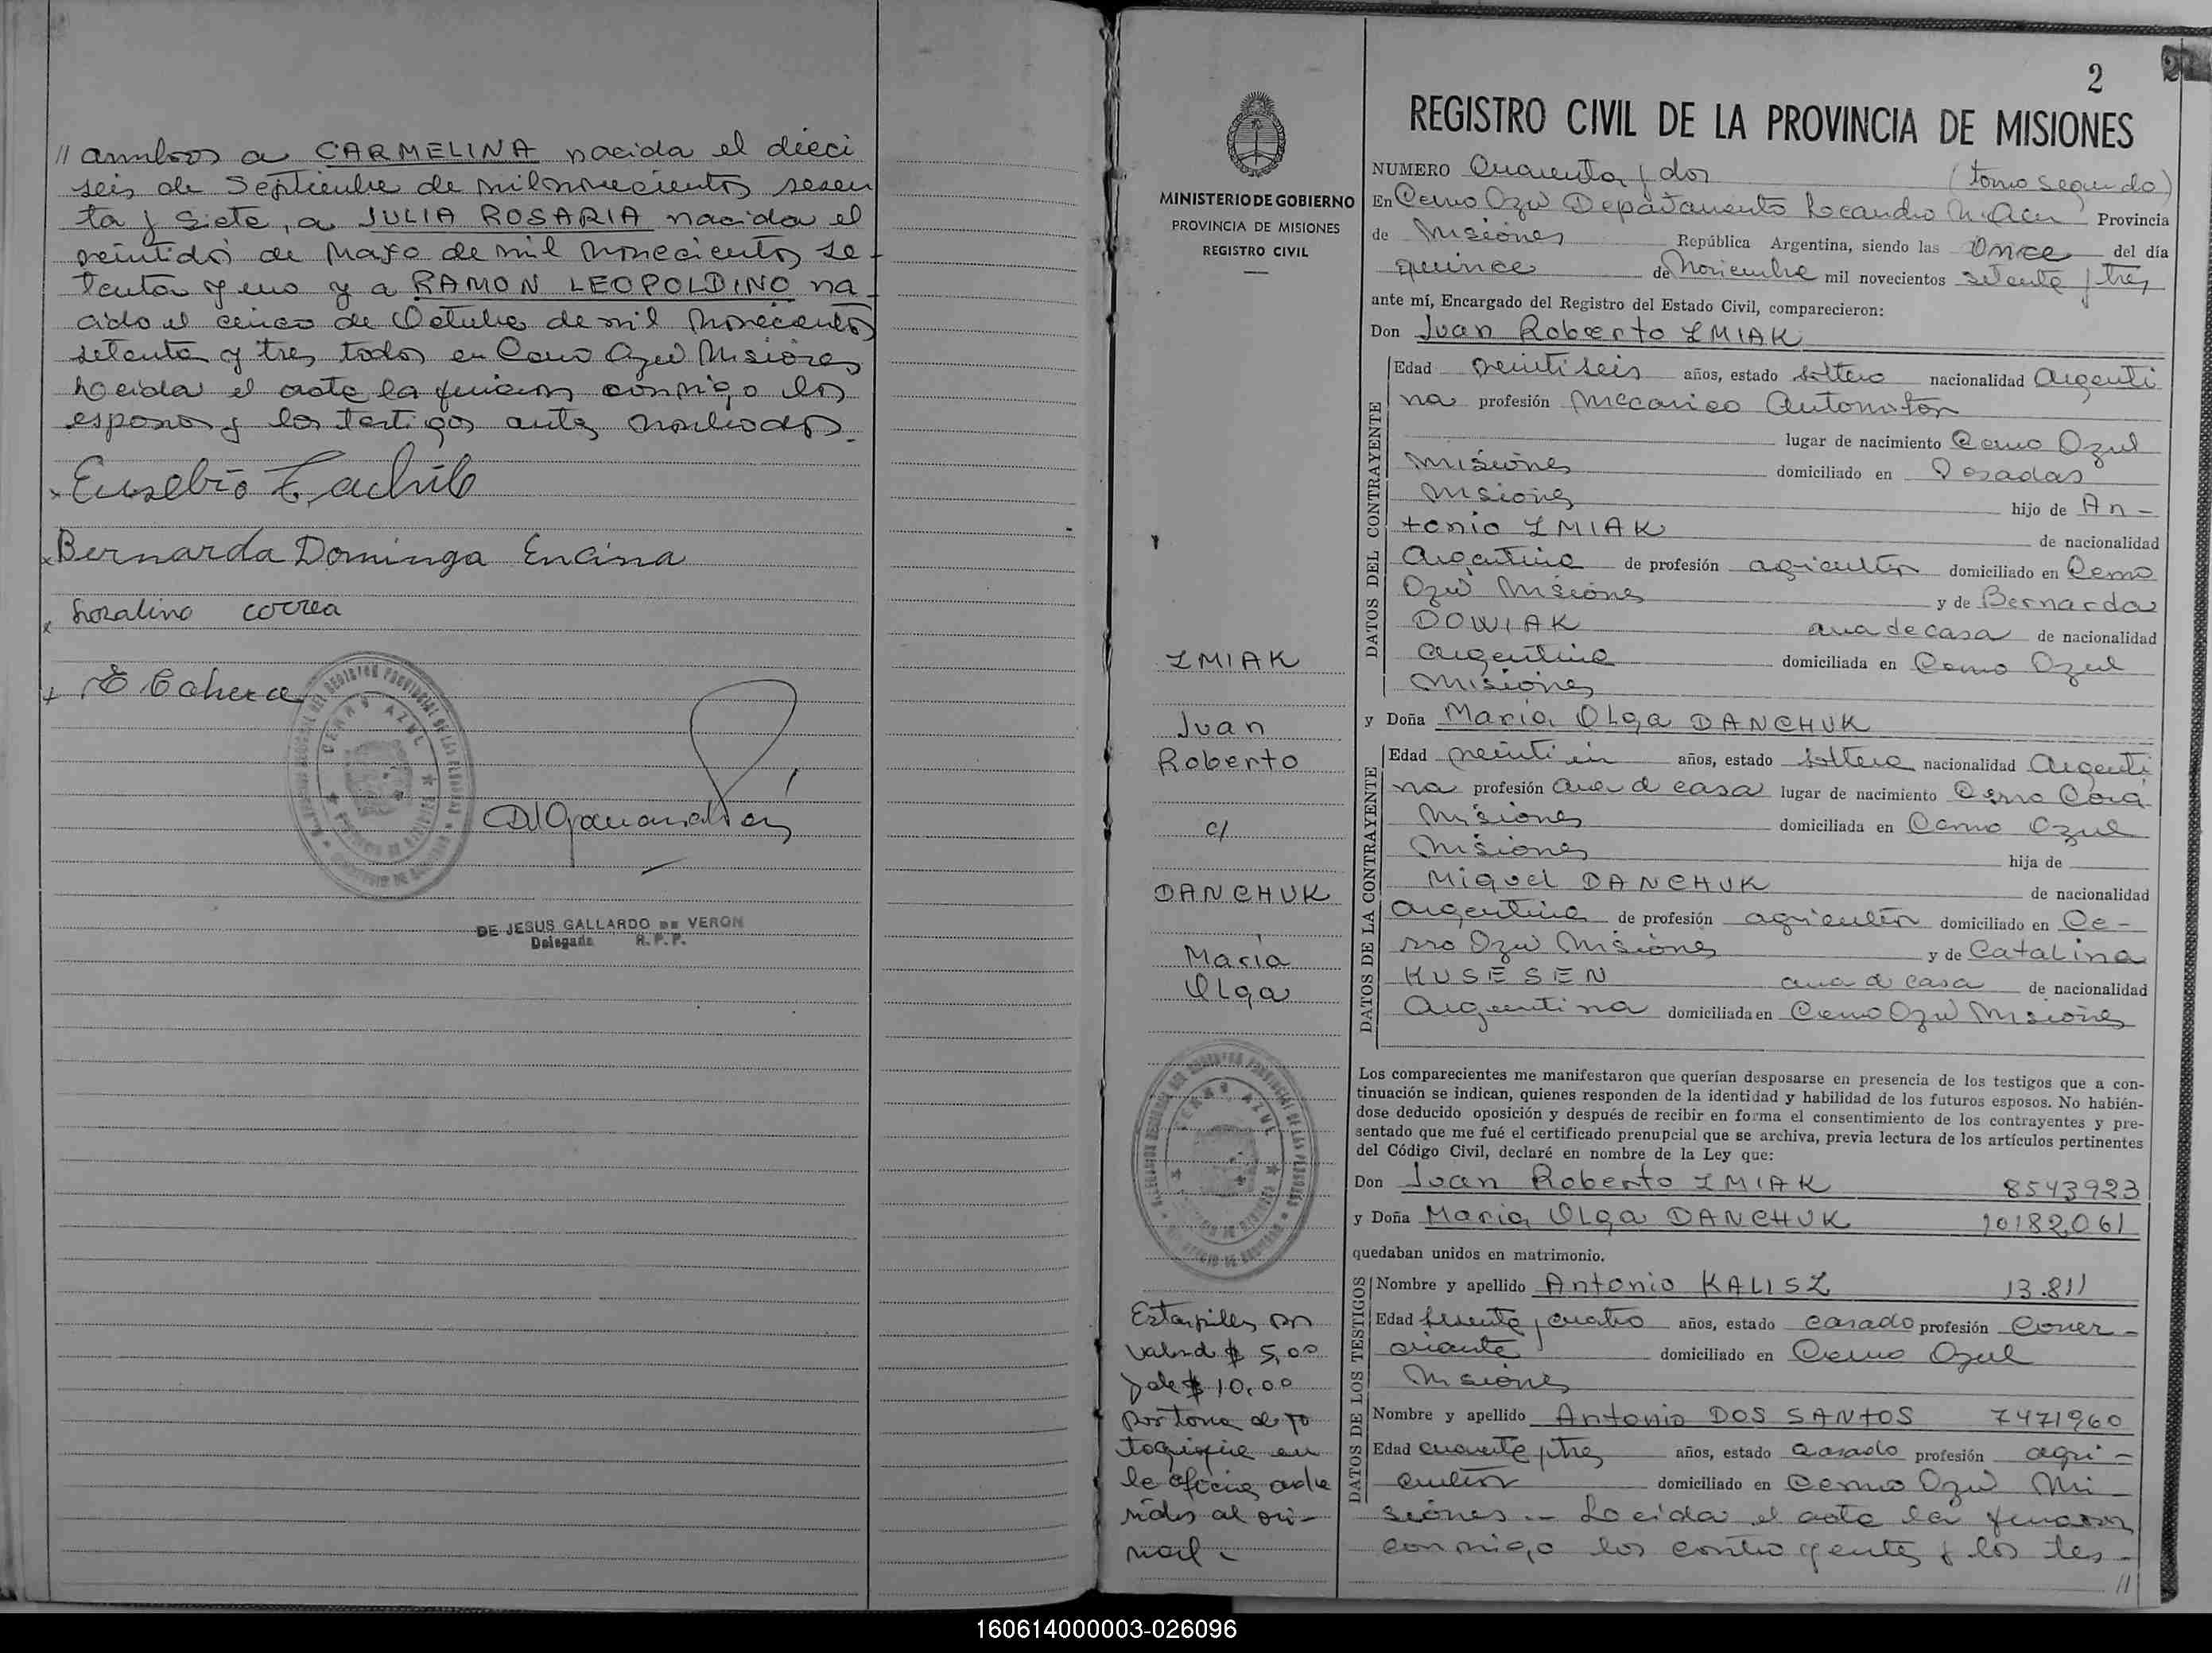 // ambos a CARMELINA nacida el dieci
seis de Septiembre de mil novecientos sesen
ta y siete, a JULIA ROSARIA nacida el
veintidos de Mayo de mil novecientos se-
tenta y uno y a RAMON LEOPOLDINO na-
cido el cinco de Octubre de mil novecientos
setenta y tres todos en Cerro Azul Misiones
Leida el acta la firman conmigo los
esposos y los testigos antes nombrados.
Eusebio
Bernarda Dominga Encina
correa
E Cabrera
CERRO AZUL
DE JESUS GALLARDO DE VERON
Delegada R.P.P.
2
MINISTERIO DE GOBIERNO
PROVINCIA DE MISIONES
REGISTRO CIVIL
ZMIAK
Juan
Roberto
c/
DANCHUK
María
Olga
CERRO AZUL
Estampillas por
valor de $ 5,00
y de $ 10,00
por toma de fo
tocopia en
la oficina adhe
ridos al ori-
REGISTRO CIVIL DE LA PROVINCIA DE MISIONES
NUMERO Cuarenta y dos (tomo segundo)
En Cerro Azul Departamento Leandro N. Alem Provincia
de Misiones República Argentina, siendo las Once del día
quince de Noviembre mil novecientos setenta y tres
ante mí, Encargado del Registro del Estado Civil, comparecieron:
Don Juan Roberto ZMIAK
DATOS DEL CONTRAYENTE
Edad veintiseis años, estado soltero nacionalidad Argenti
na profesión Mecanico Automotor
lugar de nacimiento Cerro Azul
Misiones domiciliado en Posadas
Misiones hijo de An-
tonio ZMIAK de nacionalidad
Argentina de profesión agricultor domiciliado en Cerro
Azul Misiones y de Bernarda
DOWIAK ama de casa de nacionalidad
argentina domiciliada en Cerro Azul
Misiones
y Doña María Olga DANCHUK
DATOS DE LA CONTRAYENTE
Edad veintiun años, estado soltera nacionalidad Argenti
na profesión ama de casa lugar de nacimiento Cerro Corá
Misiones domiciliada en Cerro Azul
Misiones hija de
Miguel DANCHUK de nacionalidad
argentina de profesión agricultor domiciliado en Ce-
rro Azul Misiones y de Catalina
KUSESEN ama de casa de nacionalidad
Argentina domiciliada en Cerro Azul Misiones
Los comparecientes me manifestaron que querían desposarse en presencia de los testigos que a con-
tinuación se indican, quienes responden de la identidad y habilidad de los futuros esposos. No habién-
dose deducido oposición y después de recibir en forma el consentimiento de los contrayentes y pre-
sentado que me fué el certificado prenupcial que se archiva, previa lectura de los artículos pertinentes
del Código Civil, declaré en nombre de la Ley que:
Don Juan Roberto ZMIAK 8543923
y Doña María Olga DANCHUK 10182061
quedaban unidos en matrimonio.
DATOS DE LOS TESTIGOS
Nombre y apellido Antonio KALISZ 13.811
Edad cuatro años, estado casado profesión Comer-
ciante domiciliado en Cerro Azul
Misiones
Nombre y apellido Antonio DOS SANTOS 7471960
Edad cuarenta y tres años, estado casado profesión agri-
cultor domiciliado en Cerro Azul Mi-
siones.- Leida el acta la firman
conmigo los contrayentes y los tes-
//
160614000003-026096